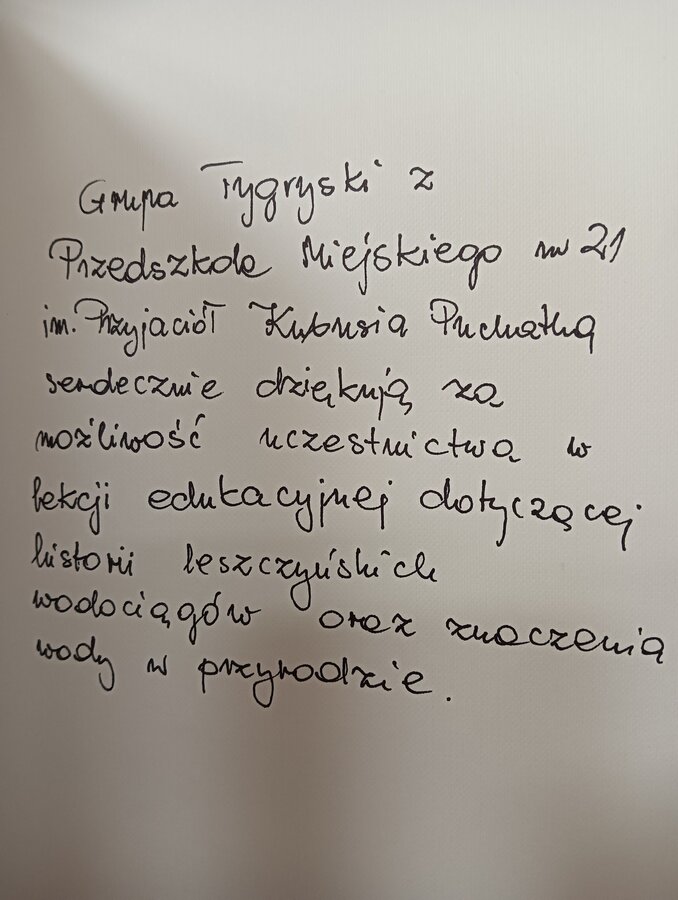 Grupa Tygryski z
Przedszkola Miejskiego nr 21
im. Przyjaciół Kubusia Puchatka
serdecznie dziękują za
możliwość uczestnictwa w
lekcji edukacyjnej dotyczącej
historii leszczyńskich
wodociągów oraz znaczenia
wody w przyrodzie.